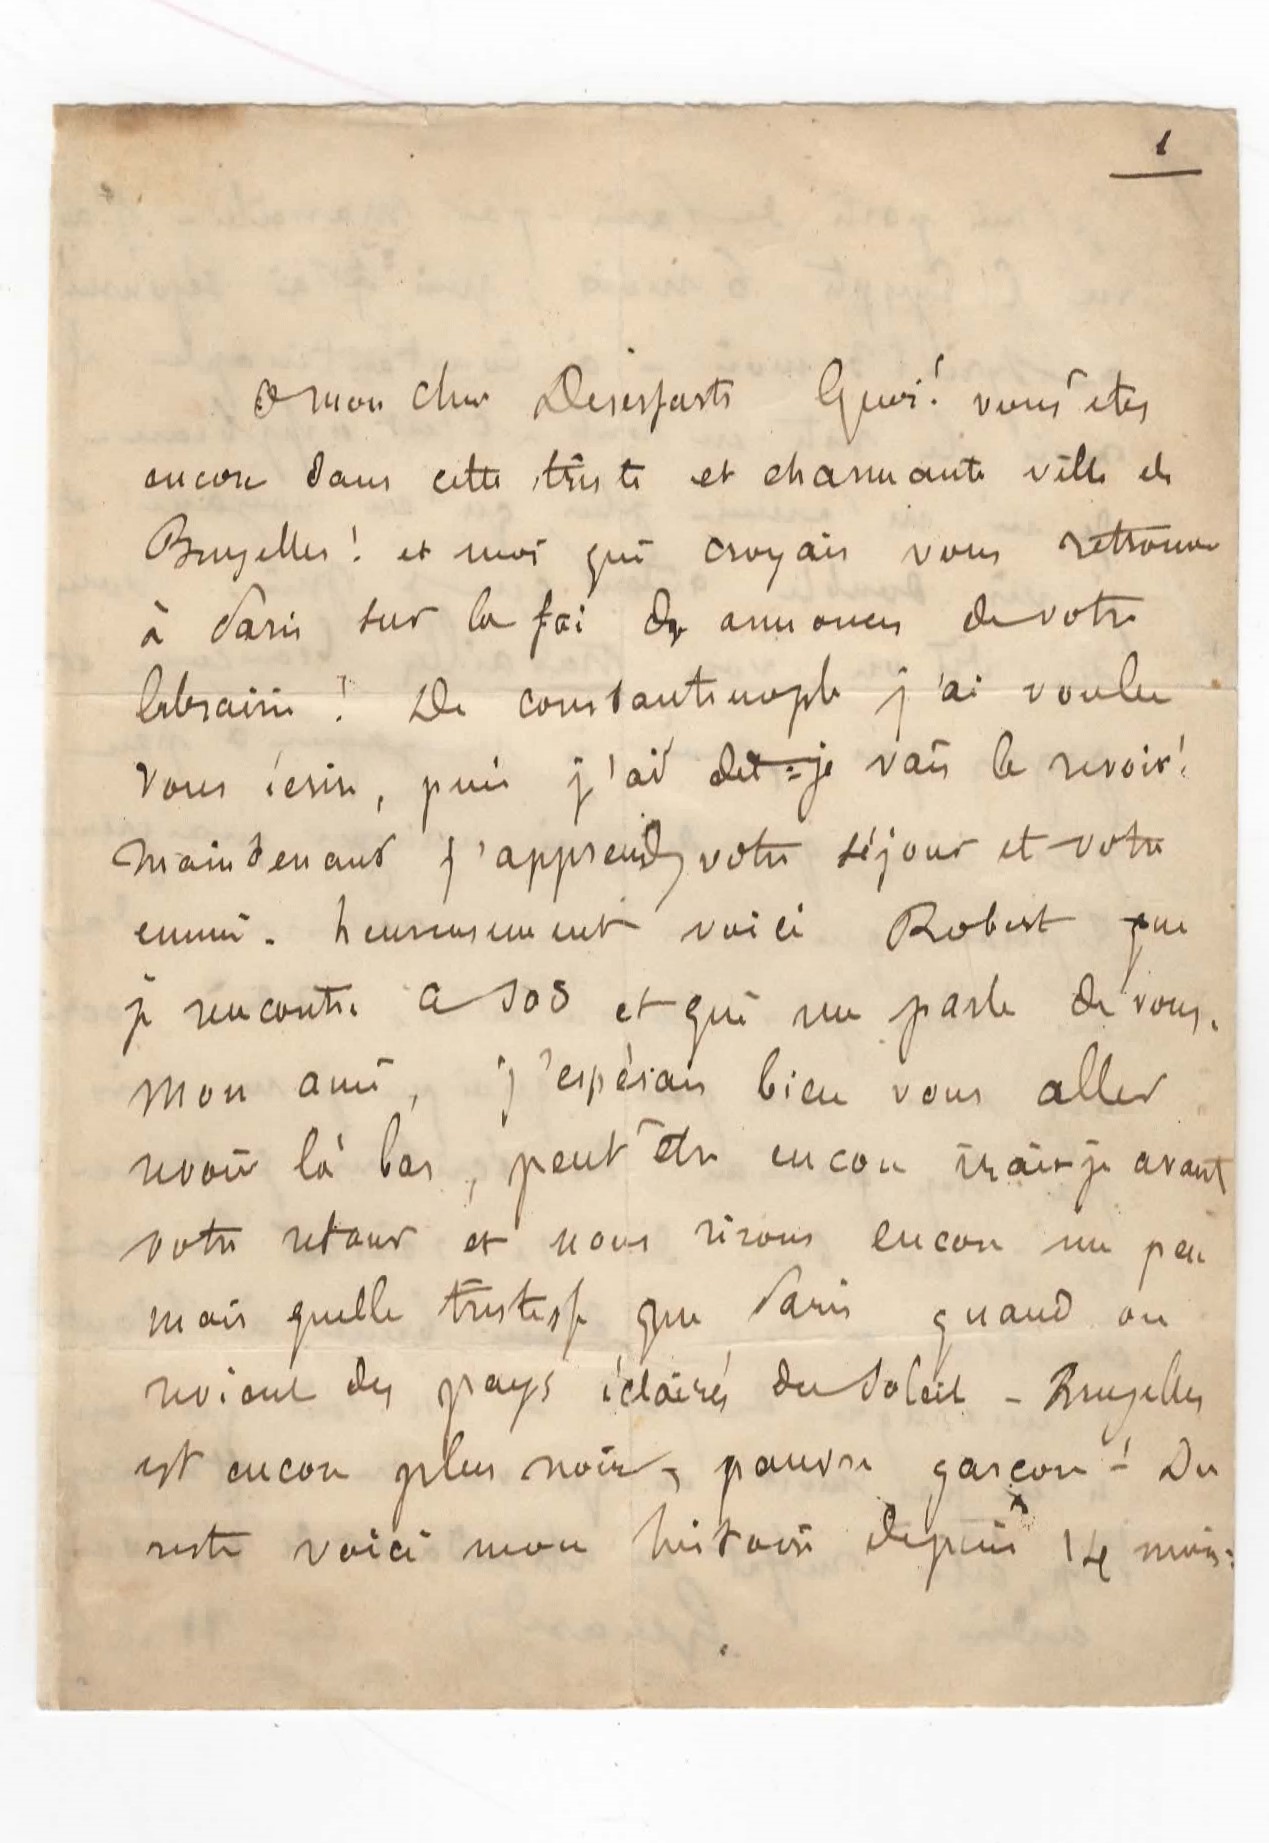 1
O mon cher Deserfarts Quoi! vous êtes
encore dans cette triste et charmante ville de
Bruxelles! et moi qui croyais vous retrouver
à Paris sur la foi des annonces de votre
librairie! De constantinople j'ai voulu
vous écrire, puis j'ai dit = je vais le revoir!
maintenant j'apprends votre séjour et votre
ennui. heureusement voici Robert que
je rencontre a et qui me parle de vous.
mon ami, j'espérais bien vous aller
revoir là bas, peut être encore irais-je avant
votre retour et nous rirons encore un peu
mais quelle tristesse que Paris quand on
revient des pays éclairés du soleil - Bruxelles
est encore plus noir, pauvre garçon! Du
reste voici mon histoire depuis 14 mois: